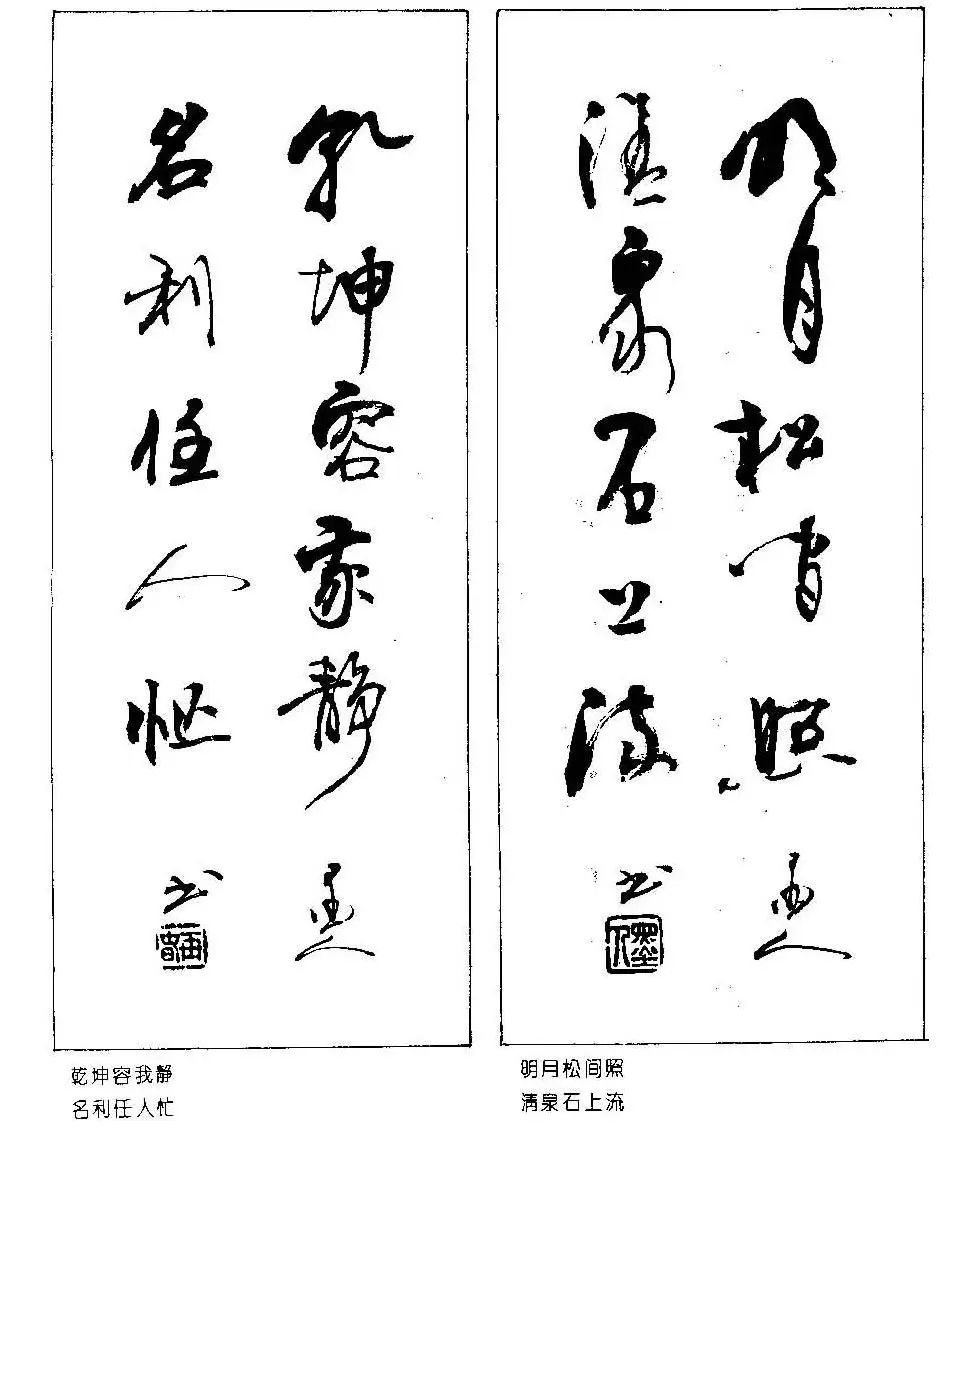 明月松间照
清泉石上流
墨人
书
墨人
乾坤容我静
名利任人忙
墨人
书
明月松间照
清泉石上流
乾坤容我静
名利任人忙